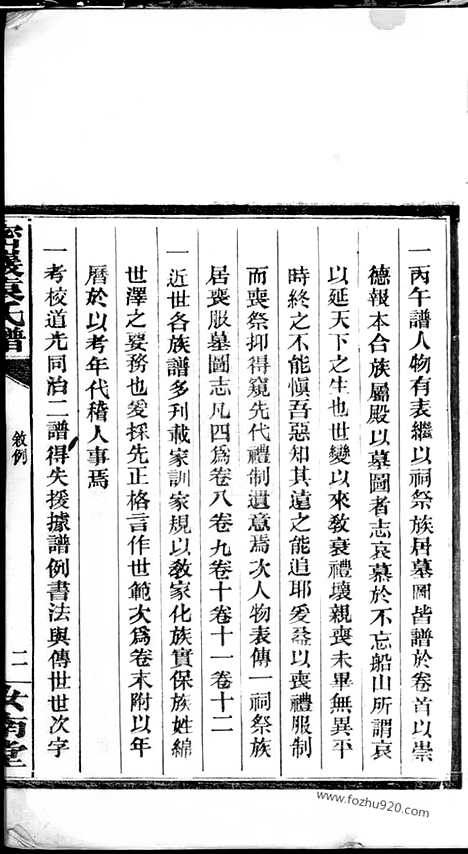 一丙午譜人物有表繼以祠祭族居墓圖皆譜於卷首以崇
德報本合族屬殿以墓圖者志哀慕於不忘船山所謂哀
以延天下之生也世變以來教衰禮壞親喪未畢無異平
時終之不能慎吾惡知其遠之能追耶爰益以喪禮服制
而喪祭抑得窺先代禮制遺意焉次人物表傳一祠祭族
居喪服墓圖志凡四為卷八卷九卷十卷十一卷十二
一近世各族譜多列載家訓家規以教家化族實保族姓綿
世澤之要務也爰採先正格言作世範次為卷末附以年
曆於以考年代稽人事焉
一考校道光同治二譜得失援據譜例書法與傳世世次字
袁氏譜
敘例
二
汝南堂
www.fozhu920.com